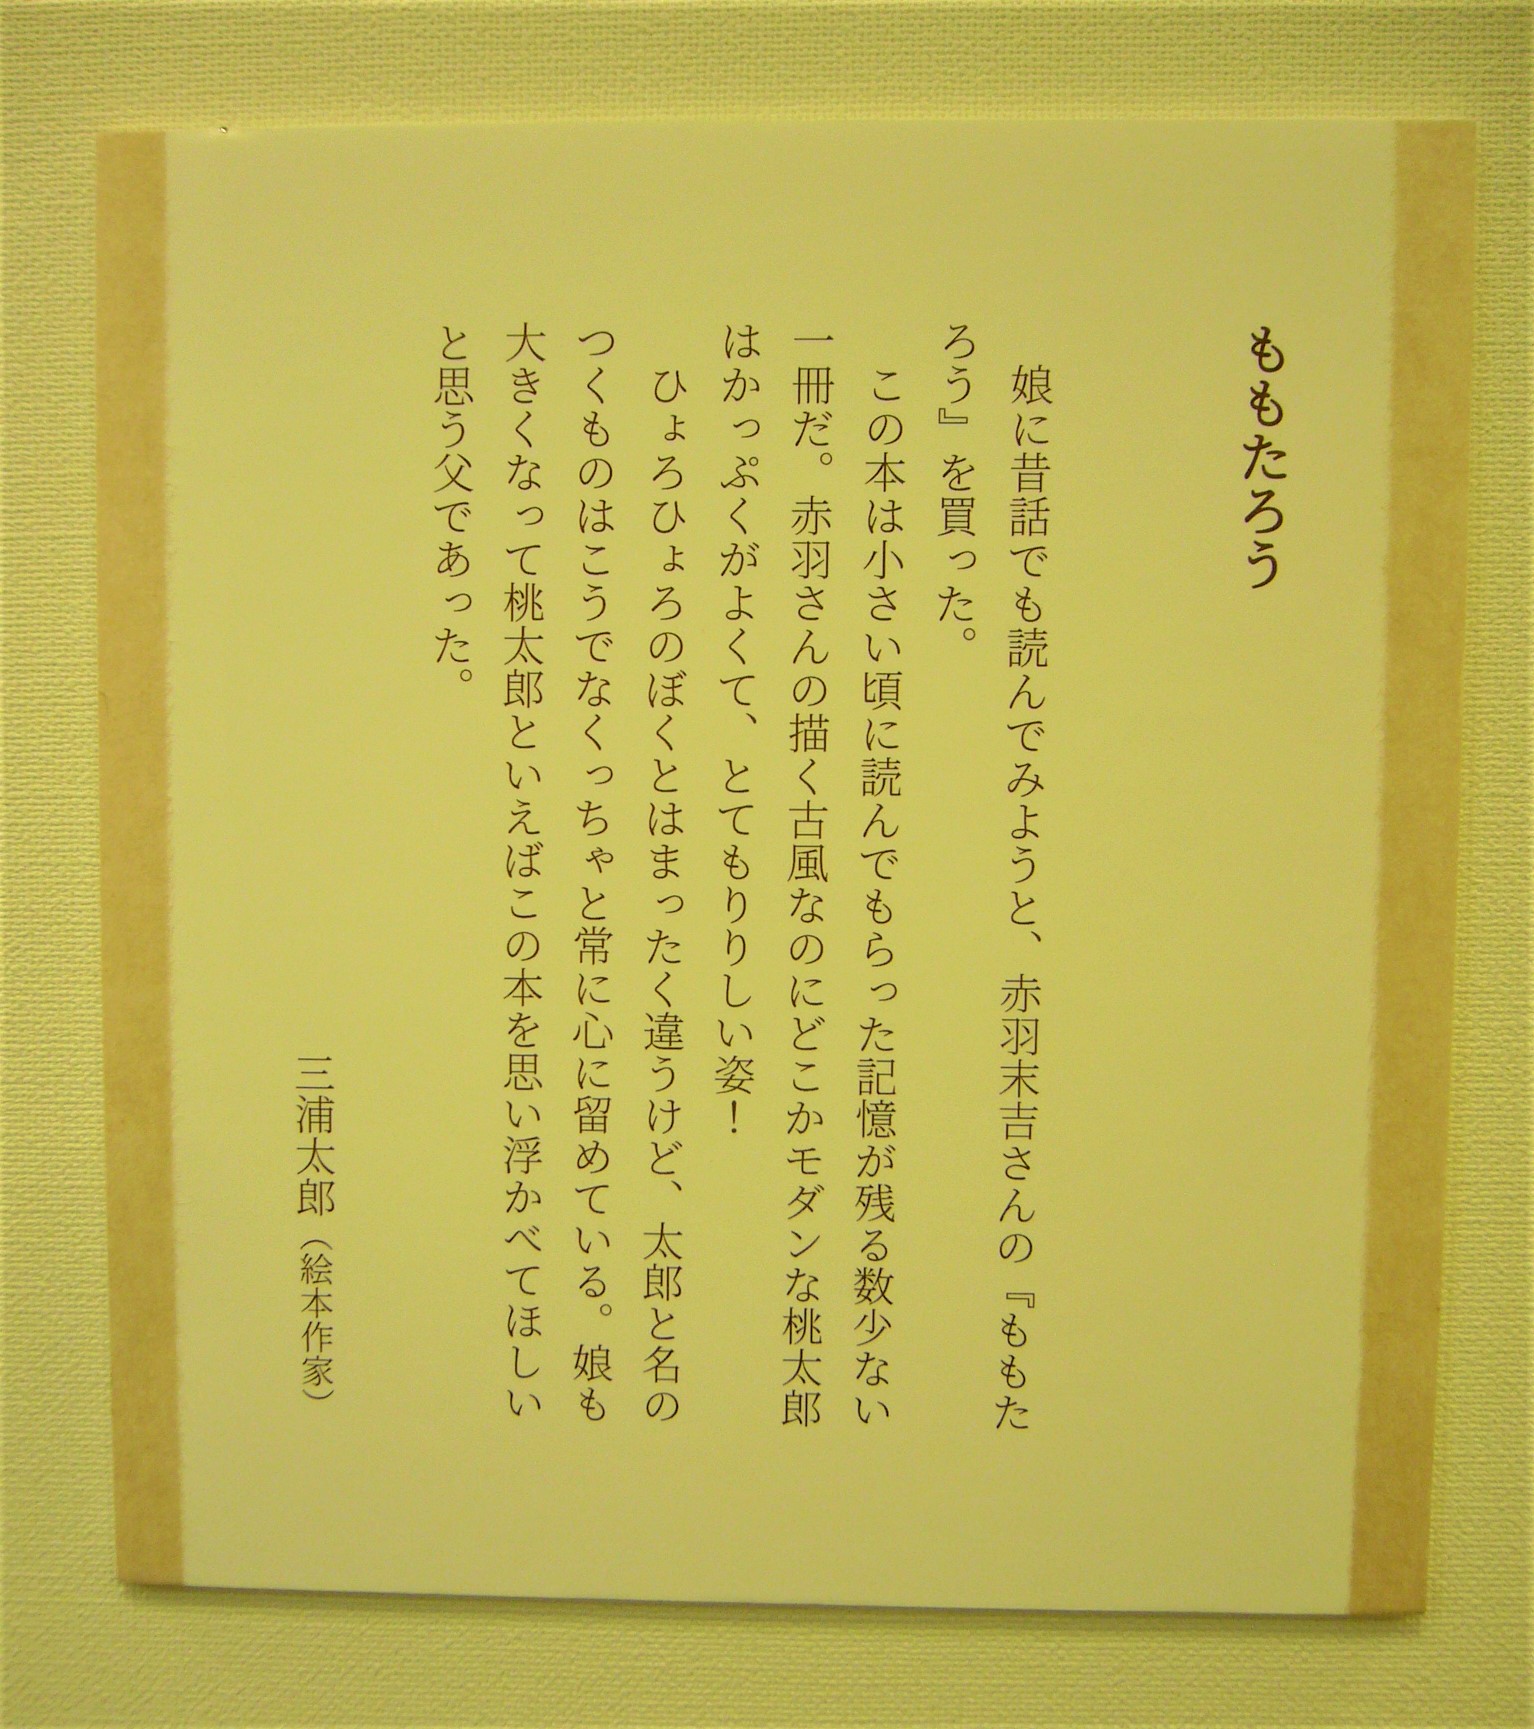 ももたろう
娘に昔話でも読んでみようと、赤羽末吉さんの『ももた
ろう』を買った。
この本は小さい頃に読んでもらった記憶が残る数少ない
一冊だ。赤羽さんの描く古風なのにどこかモダンな桃太郎
はかっぷくがよくて、とてもりりしい姿！
ひょろひょろのぼくとはまったく違うけど、太郎と名の
つくものはこうでなくっちゃと常に心に留めている。娘も
大きくなって桃太郎といえばこの本を思い浮かべてほしい
と思う父であった。
三浦太郎（絵本作家）